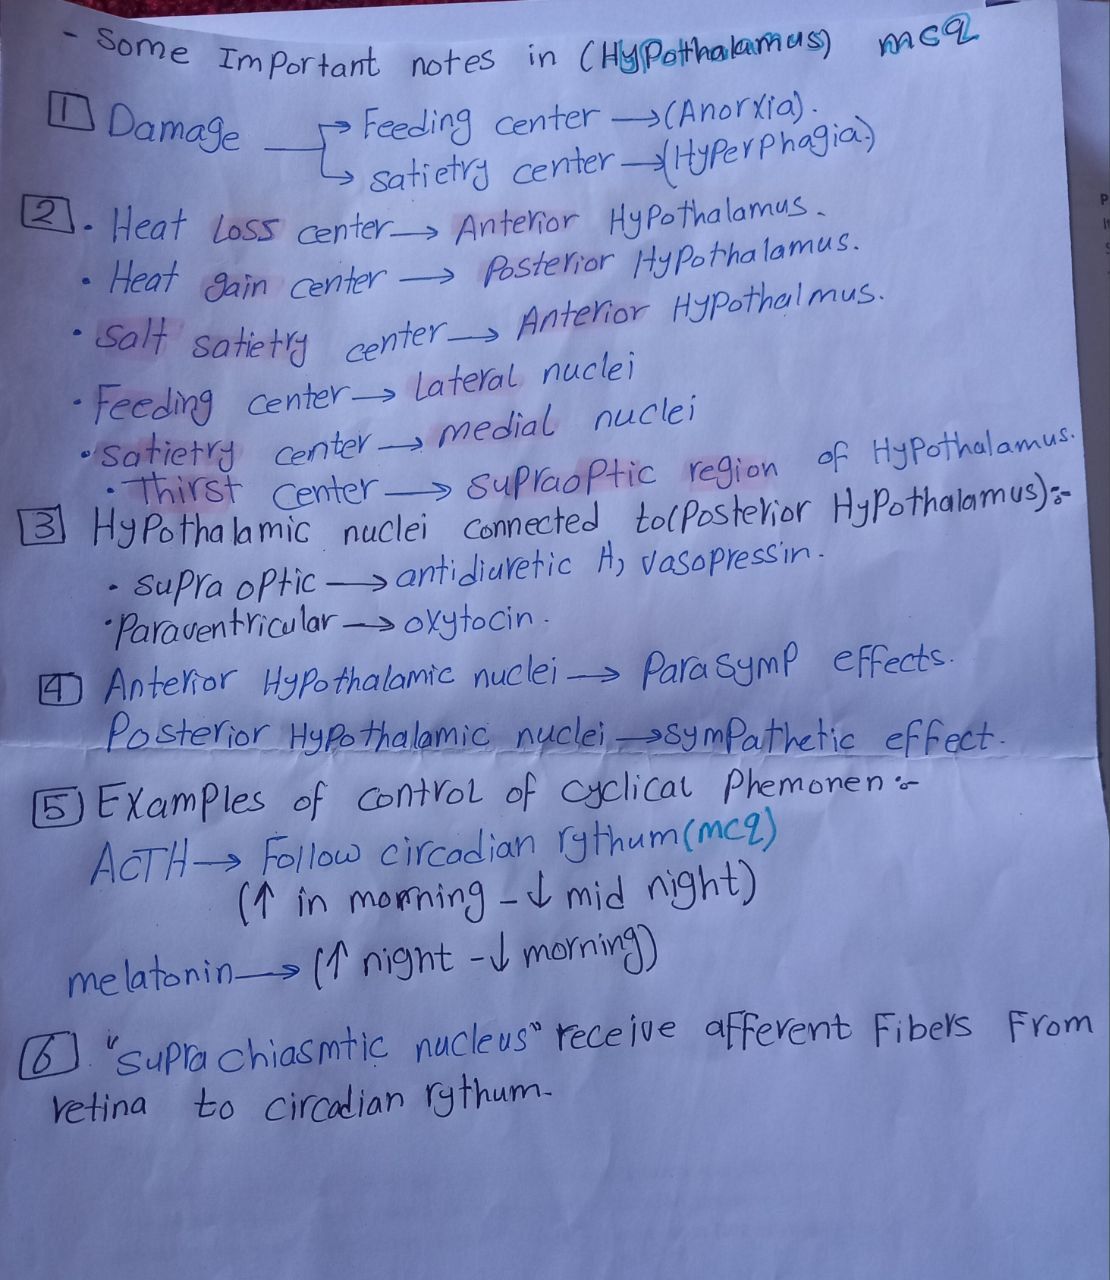 - Some Important notes in (Hypothalamus) mcq
1 Damage → Feeding center → (Anorxia).
→ satietry center → (Hyperphagia)
2 • Heat Loss center → Anterior Hypothalamus.
• Heat gain center → Posterior Hypothalamus.
• Salt satietry center → Anterior Hypothalmus.
• Feeding center → Lateral nuclei
• Satietry center → medial nuclei
• Thirst center → supraoptic region of Hypothalamus.
3 Hypothalamic nuclei connected to(Posterior Hypothalamus):-
• supra optic → antidiuretic H, vasopressin.
• Paraventricular → oxytocin.
4 Anterior Hypothalamic nuclei → Parasymp effects.
Posterior Hypothalamic nuclei → sympathetic effect.
5 Examples of control of cyclical Phemonen:-
ACTH → Follow circadian rythum (mcq)
(↑ in morning - ↓ mid night)
melatonin → (↑ night - ↓ morning)
6. "supra chiasmtic nucleus" receive afferent Fibers From
retina to circadian rythum.